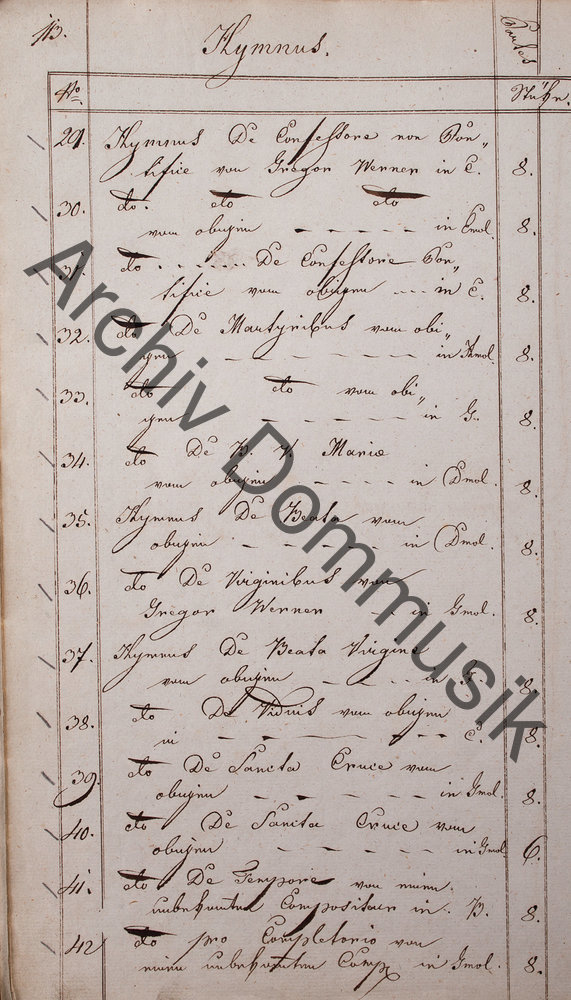 113.
Hymnus.
Partes
No
Stücke.
29. Hymnus De Confessore non Pon„
tifice von Gregor Werner in C. 8.
30. do. do do
vom obigen - - - - in Emol. 8.
31. do . . . . . . . De Confessore Pon„
tifice vom obigen - - - in C. 8.
32. do De Martyribus vom obi„
gen - - - - - - in Amol. 8.
33. do do vom obi„
gen - - - - - in G. 8.
34. do De B. V. Mariæ
vom obigen - - - - - in Dmol. 8.
35. Hymnus De Beata vom
obigen - - - - - in Dmol. 8.
36. do De Virginibus von
Gregor Werner - in Gmol. 8.
37. Hymnus De Beata Virgine
vom obigen - - - - in G. 8.
38. do De Viduis vom obigen
in - - - - - - C. 8.
39. do De Sancta Cruce vom
obigen - - - - - in Gmol. 8.
40. do De Sancta Cruce vom
obigen - - - - - in Gmol. 6.
41. do De Tempore von einem
unbekannten Compositeur in B. 8.
42 do pro Completorio von
einem unbekannten Comp. in Gmol. 8.
Archiv Dommusik